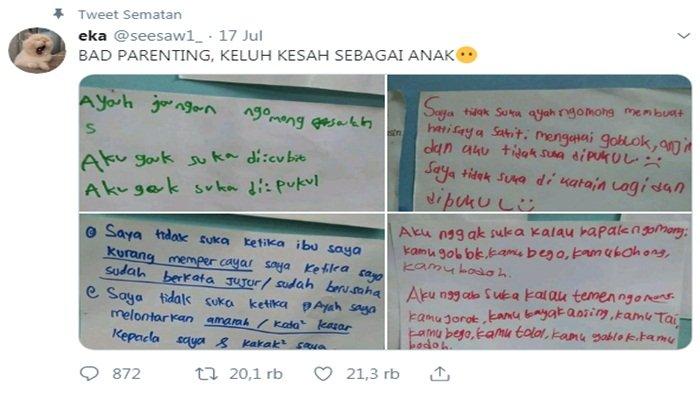 Tweet Sematan
eka @seesaw1_ · 17 Jul
BAD PARENTING, KELUH KESAH SEBAGAI ANAK😶
Ayah jangan ngomong
S
Aku gak suka di:cubit
Aku gak suka di:pukul
Saya tidak suka ayah ngomong membuat
hati saya sakit. mengatai goblok, anjin
dan aku tidak suka dipukul
Saya tidak suka di katain lagi dan
dipukul
Saya tidak suka ketika ibu saya
kurang mempercayai saya ketika saya
sudah berkata jujur / sudah berusaha
Saya tidak suka ketika Ayah saya
melontarkan amarah / kata² kasar
kepada saya & kakak² saya
Aku nggak suka kalau bapak ngomong:
kamu goblok, kamu bego, kamu bohong,
kamu bodoh.
Aku nggak suka kalau temen ngomong
kamu jorok, kamu kamu Tai,
kamu bego, kamu tolol, kamu goblok, kamu
bodoh.
872 20,1 rb 21,3 rb